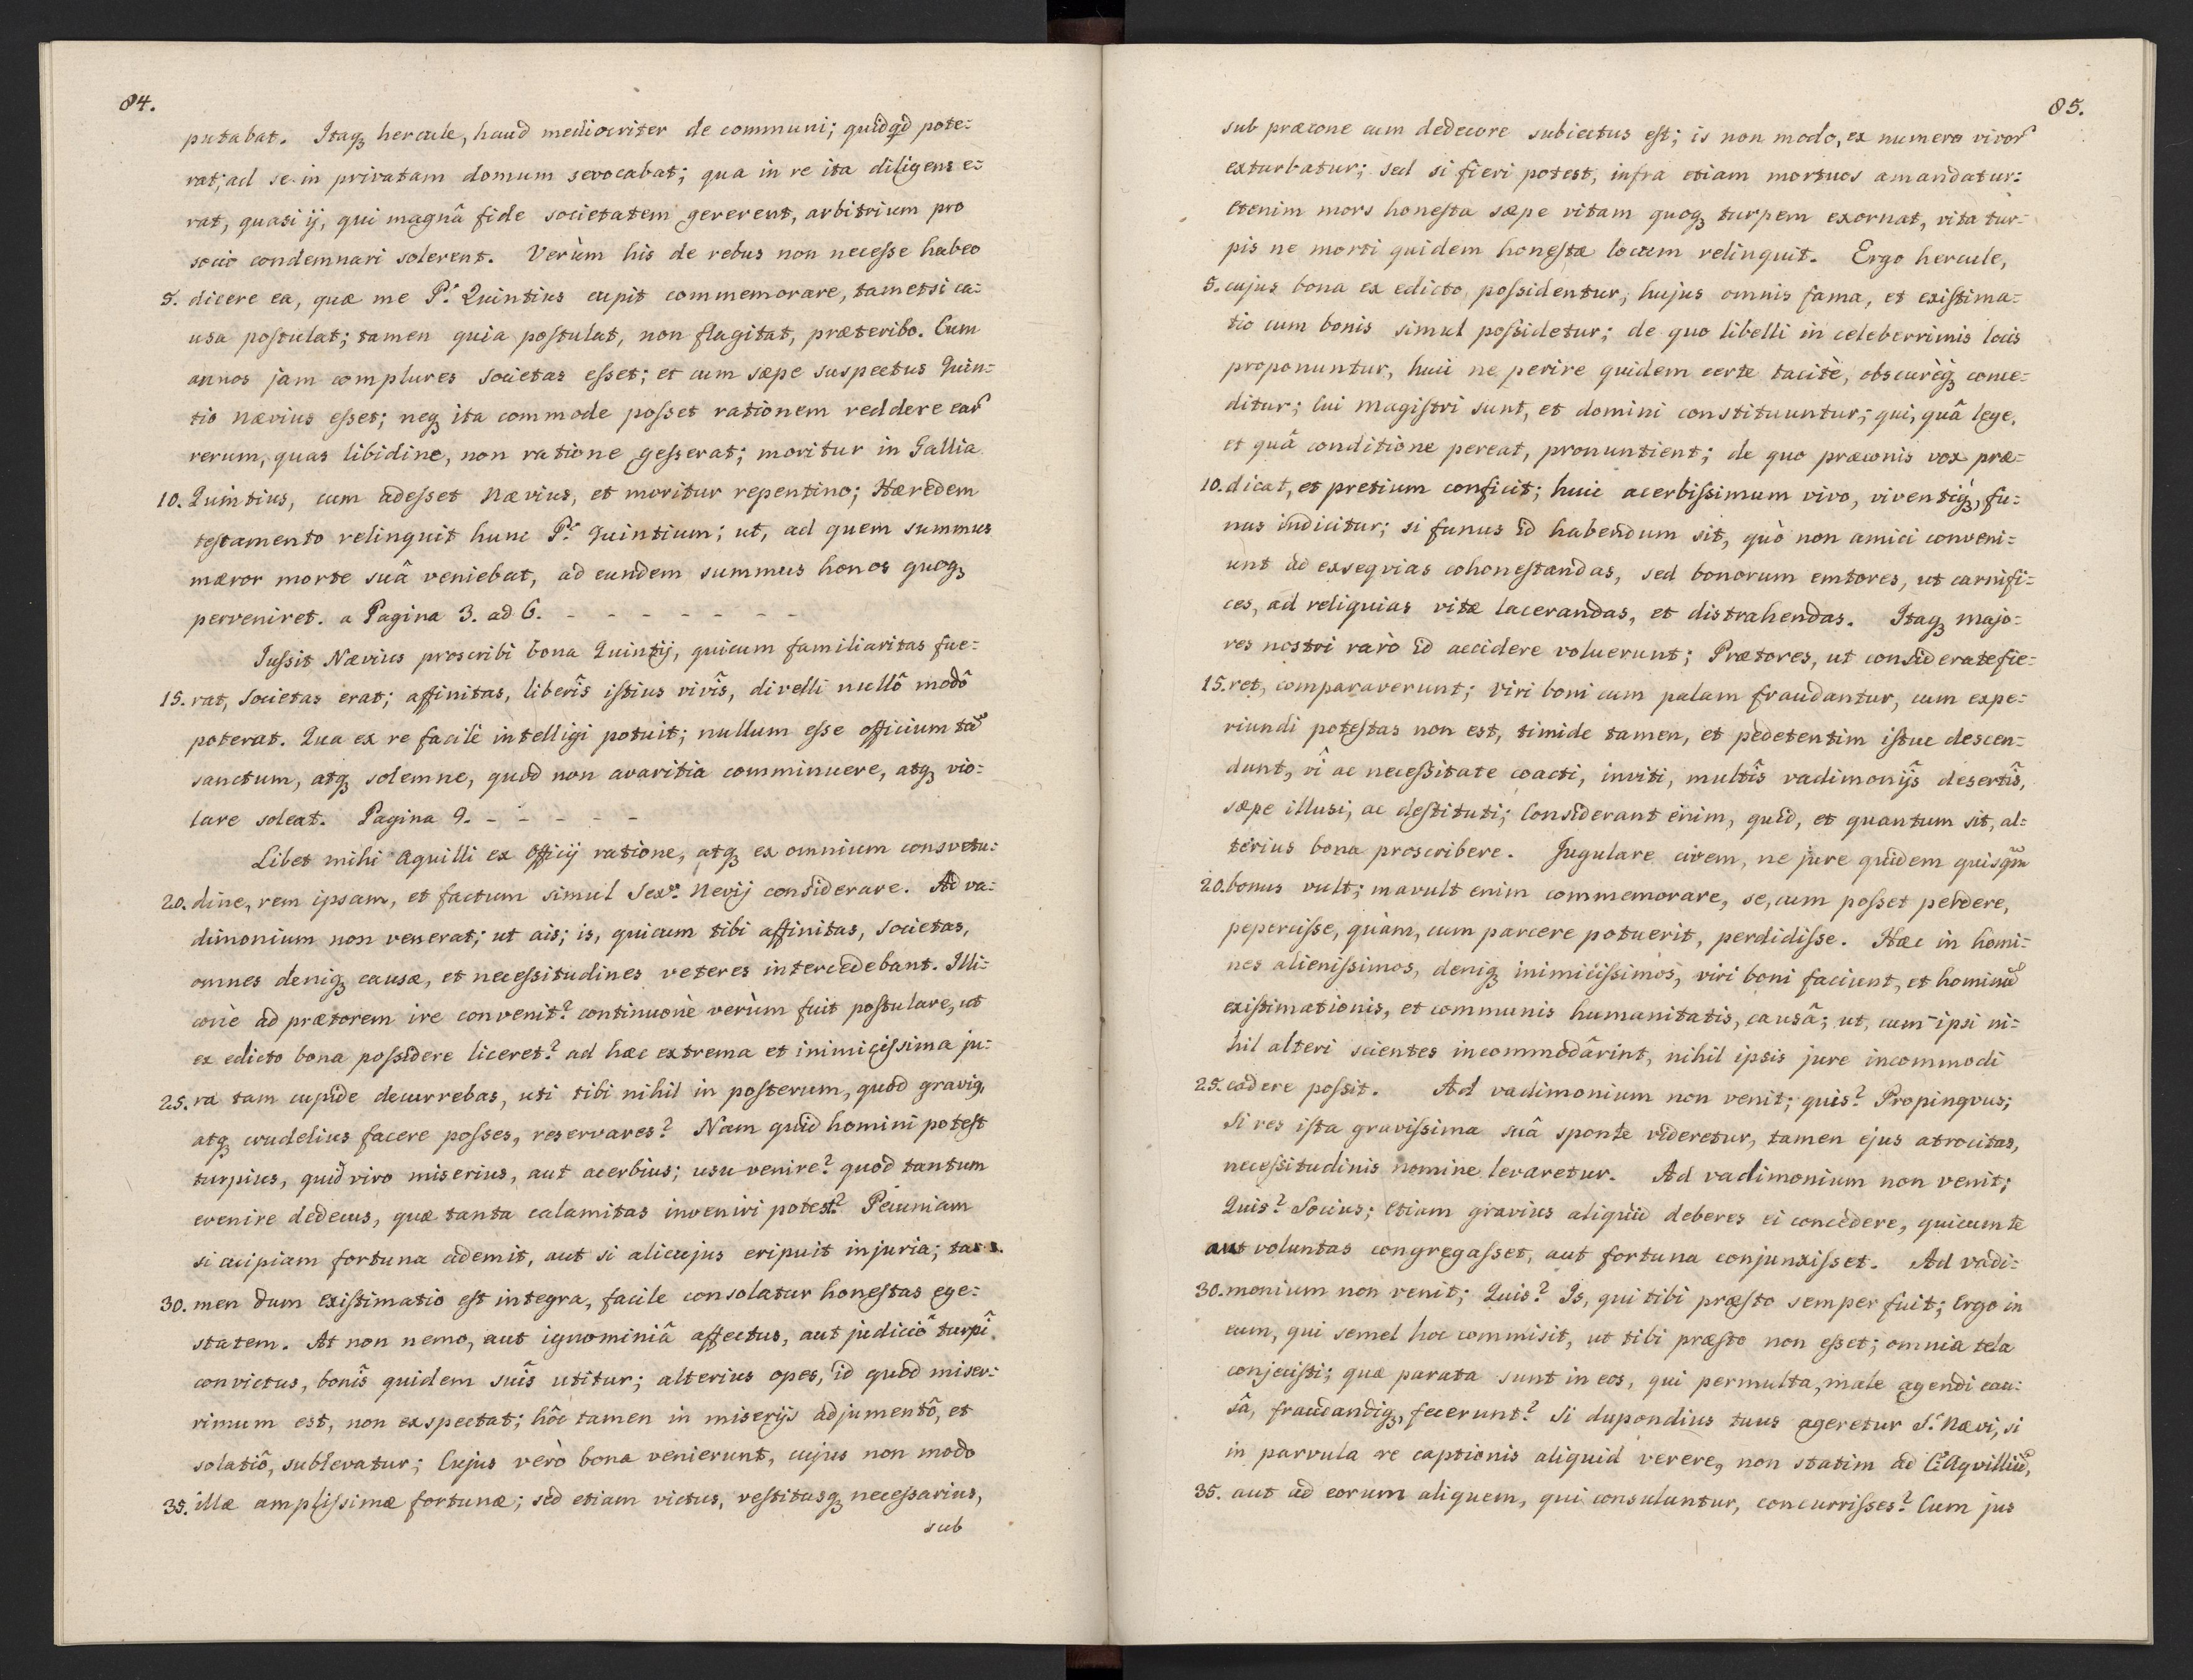 84.
putabat. Itaq₃ hercule, haud mediocriter de communi; quidqd pote=
rat; ad se in privatam domum sevocabat; qua in re ita diligens e=
rat, quasi ij, qui magnâ fide societatem gererent, arbitrium pro
socio condemnari solerent. Verùm his de rebus non necesse habeo
5. dicere ea, quæ me P.ˢ Quintius cupit commemorare, tametsi ca=
usa postulat; tamen quia postulat, non flagitat, præteribo. Cum
annos jam complures societas esset; et cum sæpe suspectus Quin=
tio Nævius esset; neq₃ ita commode posset rationem reddere ear
rerum, quas libidine, non ratione gesserat; moritur in Gallia
10. Quintius, cum adesset Nævius, et moritur repentino; Hæredem
testamento relinquit hunc P.ˢ Quintium; ut, ad quem summus
mæror morte suâ veniebat, ad eundem summus honos quoq₃
perveniret. a Pagina 3. ad 6. - - - - - - - -
Jussit Nævius proscribi bona Quintij, quicum familiaritas fue=
15. rat, Societas erat; affinitas, liberîs istius vivîs, divelli nullô modô
poterat. Qua ex re facilè intelligi potuit; nullum esse officium tã
sanctum, atq₃ solemne, quod non avaritia comminuere, atq₃ vio=
lare soleat. Pagina 9. - - - - -
Libet mihi Aquilli ex Officij ratione, atq₃ ex omnium consvetu=
20. dine, rem ipsam, et factum simul Sex.ᵗⁱ Nevij considerare. Ad va=
dimonium non venerat; ut ais; is, quicum tibi affinitas, Societas,
omnes deniq₃ causæ, et necessitudines veteres intercedebant. Illi=
conè ad prætorem ire convenit? continuonè verùm fuit postulare, ut
ex edicto bona possidere liceret? ad hæc extrema et inimicissima ju=
25. ra tam cupide decurrebas, uti tibi nihil in posterum, quod graviq,
atq₃ crudelius facere posses, reservares? Nam quid homini potest
turpius, quid viro miserius, aut acerbius; usu venire? quod tantum
evenire dedecus, quæ tanta calamitas inveniri potest? Pecuniam
si cuipiam fortuna ademit, aut si alicujus eripuit injuria; ta=
30. men dum existimatio est integra, facile consolatur honestas ege=
statem. At non nemo, aut ignominiâ affectus, aut judiciô turpî
convictus, bonîs quidem suîs utitur; alterius opes, id quod miser=
rimum est, non exspectat; hôc tamen in miserijs adjumentô, et
solatiô, sublevatur; Cujus verò bona venierunt, cujus non modo
35. illæ amplissimæ fortunæ; sed etiam victus, vestitusq₃ necessarius,
sub
85.
sub præcone cum dedecore subiectus est; is non modo, ex numero viror
exturbatur; sed si fieri potest, infra etiam mortuos amandatur:
etenim mors honesta sæpe vitam quoq₃ turpem exornat, vita tur=
pis ne morti quidem honestæ locum relinquit. Ergo hercule,
5. cujus bona ex edicto possidentur; hujus omnis fama, et existima=
tio cum bonis simul possidetur; de quo libelli in celeberrimis locis
proponuntur, huic ne perire quidem certe tacitè, obscurèq₃ conce=
ditur; Cui Magistri sunt, et domini constituuntur; qui, quâ lege,
et quâ conditione pereat, pronuntient; de quo præconis vox præ=
10. dicat, et pretium conficit; huic acerbissimum vivo, viventiq₃, fu=
nus indicitur; si funus id habendum sit, quò non amici conveni=
unt ad exseqvias cohonestandas, sed bonorum emtores, ut carnifi=
ces, ad reliquias vitæ lacerandas, et distrahendas. Itaq₃ majo=
res nostri rarò id accidere voluerunt; Prætores, ut considerate fie=
15. ret, comparaverunt; Viri boni cum palam fraudantur, cum expe=
riundi potestas non est, timide tamen, et pedetentim istuc descen=
dunt, vî ac necessitate coacti, inviti, multîs vadimonijs desertîs,
sæpe illusi, ac destituti; Considerant enim, quid, et quantum sit, al=
terius bona proscribere. Jugulare civem, ne jure quidem quisqm̃
20. bonus vult; mavult enim commemorare, se, cum posset perdere,
pepercisse, quàm, cum parcere potuerit, perdidisse. Hæc in homi=
nes alienissimos, deniq₃ inimicissimos, viri boni faciunt, et hominũ
existimationis, et communis humanitatis, causâ; ut, cum ipsi ni=
hil alteri scientes incommodârint, nihil ipsis jure incommodi
25. cadere possit. Ad vadimonium non venit; quis? Propinqvus;
Si res ista gravissima suâ sponte videretur, tamen ejus atrocitas,
necessitudinis nomine levaretur. Ad vadimonium non venit;
Quis? Socius; etiam gravius aliquid deberes ei concedere, quicum te
aut voluntas congregasset, aut fortuna conjunxisset. Ad vadi=
30. monium non venit; Quis? Is, qui tibi præsto semper fuit; Ergo in
eum, qui semel hoc commisit, ut tibi præsto non esset; omnia tela
conjecisti; quæ parata sunt in eos, qui permulta, male agendi cau=
sâ, fraudandiq₃, fecerunt? Si dupondius tuus ageretur S.ᵉ Nævi, si
in parvula re captionis aliquid verere, non statim ad C. Aqvilliũ,
35. aut ad eorum aliquem, qui consuluntur, concurrisses? Cum jus